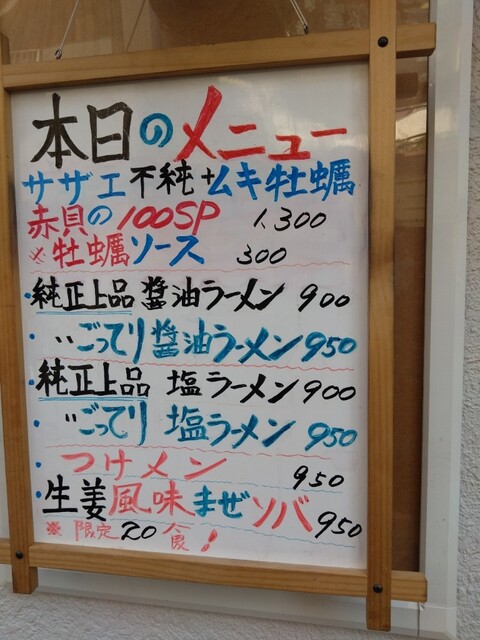 本日のメニュー
サザエ不純+ムキ牡蠣
赤貝の100SP 1,300
※牡蠣ソース 300
・純正上品 醤油ラーメン 900
・〃ごってり醤油ラーメン 950
・純正上品 塩ラーメン 900
・〃ごってり 塩ラーメン 950
・つけメン 950
・生姜風味まぜソバ 950
※限定20食!